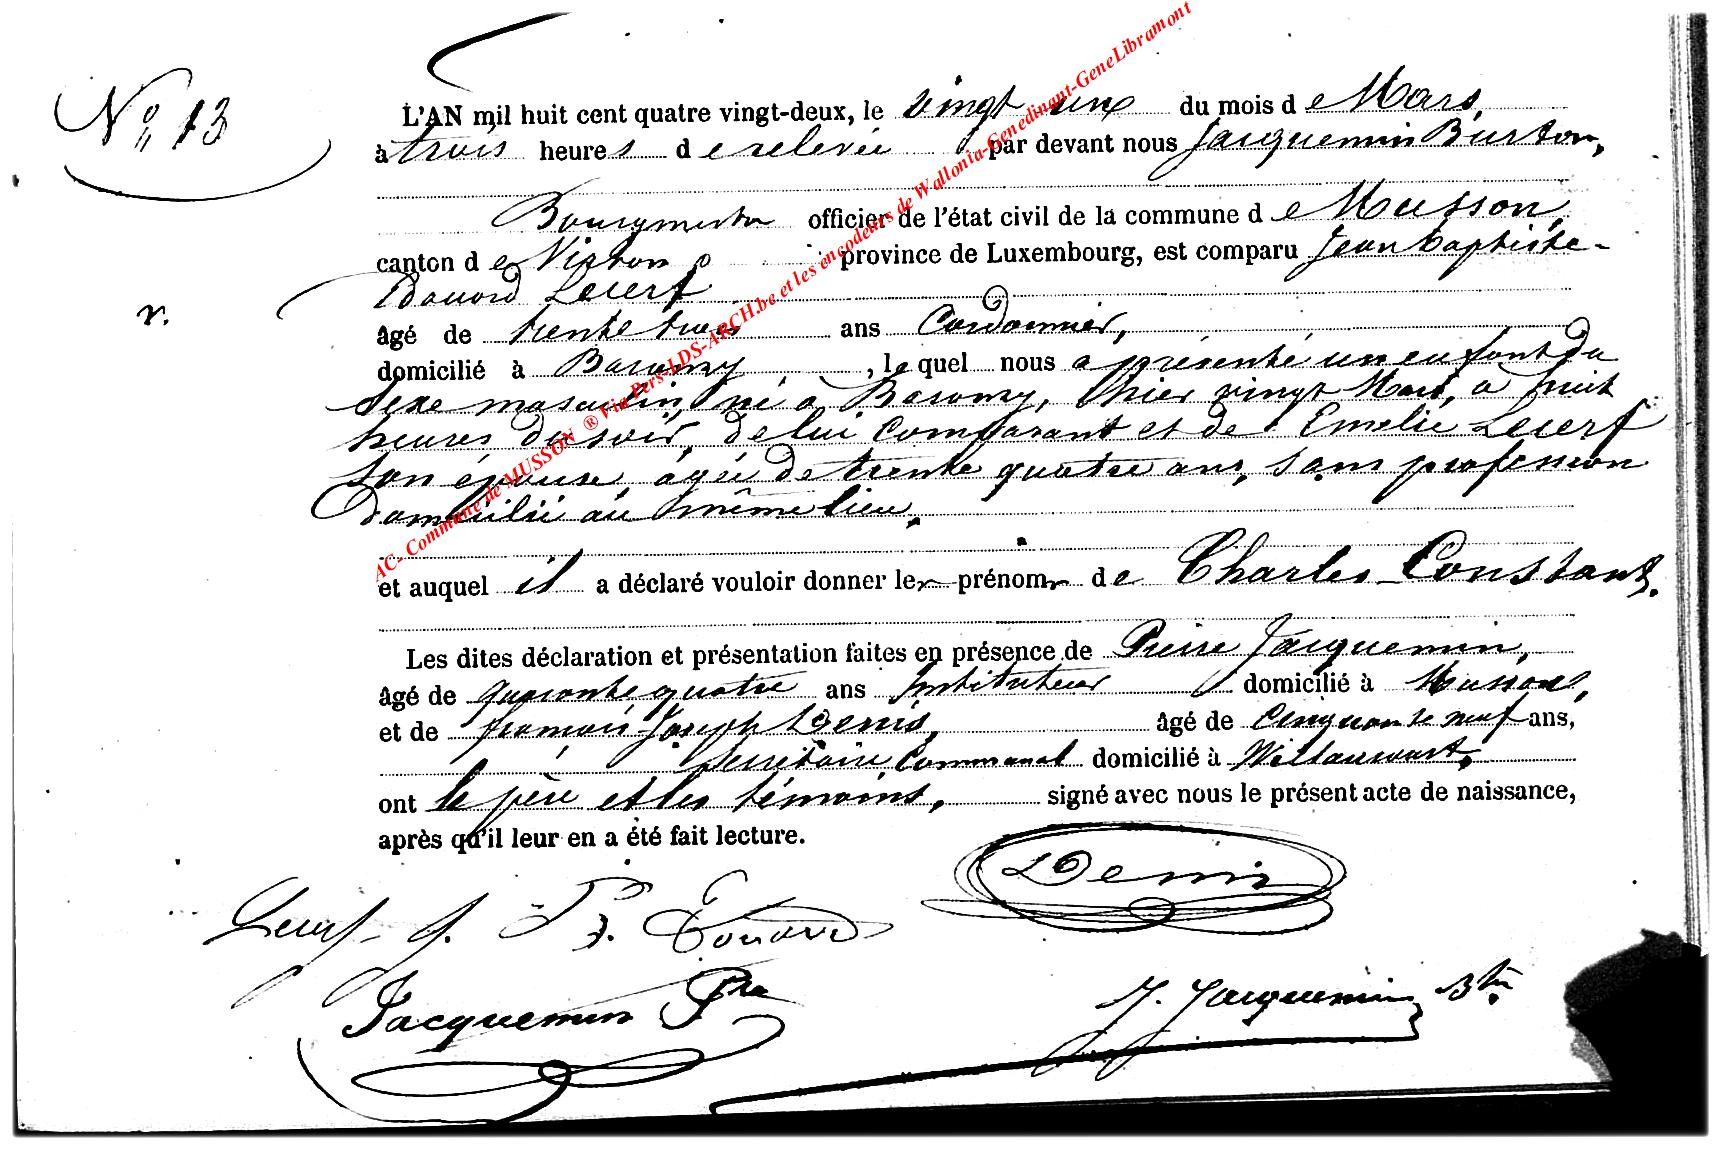 N° 13
L'AN mil huit cent quatre vingt-deux, le vingt un du mois de Mars,
à trois heures de relevée par devant nous Jacquemin Burton,
Bourgmestre officier de l'état civil de la commune de Musson,
canton de Virton province de Luxembourg, est comparu Jean baptiste-
Edouard Lecerf
âgé de trente trois ans Cordonnier,
domicilié à Baranzy, lequel nous a présenté un enfant du
sexe masculin, né à Baranzy, hier vingt Mars, à huit
heures du soir, de lui Comparant et de Emelie Lecerf
son épouse, âgée de trente quatre ans, sans profession
domiciliée au même lieu.
et auquel il a déclaré vouloir donner les prénoms de Charles Constant.
Les dites déclaration et présentation faites en présence de Pierre Jacquemin,
âgé de quarante quatre ans Instituteur domicilié à Musson,
et de françois Joseph Denis, âgé de Cinquante neuf ans,
Secrétaire Communal domicilié à Willancourt,
ont le père et les témoins, signé avec nous le présent acte de naissance,
après qu'il leur en a été fait lecture.
Denis
Lecerf J. B. Edouard
Jacquemin Pre
J. Jacquemin Btn
AC- Commune de MUSSON ® Via Pers-LDS-ARCH.be et les encodeurs de Wallonia-Genedinant-GeneLibramont